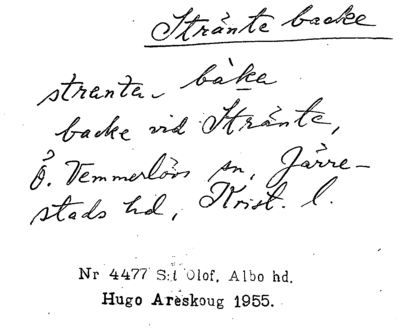 Stränte backe
stranta- bàka
backe vid Stränte,
Ö. Vemmerlövs sn, Järre-
stads hd, Krist. l.
Nr 4477 S:t Olof, Albo hd.
Hugo Areskoug 1955.